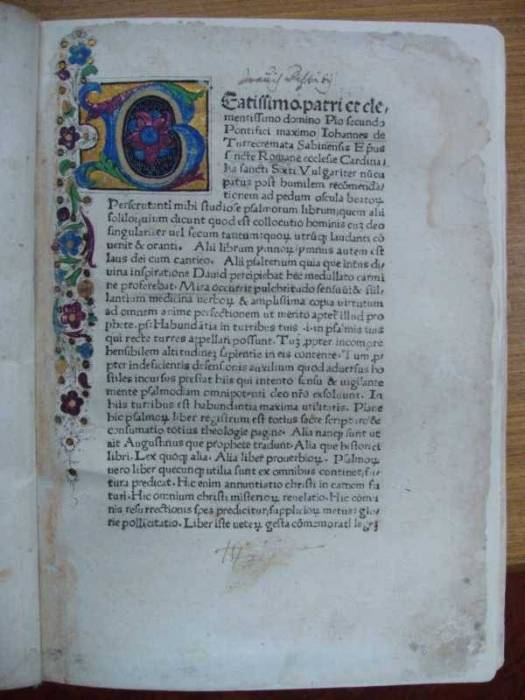 Beatissimo.patri et cle,
mentissimo domino Pio secundo
Pontifici maximo Iohannes de
Turrecremata Sabinensis Ep̄us
sancte Romane ecclesie Cardina,
lis sancti Sixti Vulgariter nūcu
patus post humilem recōmenda,
tionem ad pedum oscula beatoꝝ
Perscrutanti mihi studiose psalmorum librum, quem alii
soliloquium dicunt quod est collocutio hominis cuȝ deo
singulariter uel secum tantum: quoꝝ utrūqꝫ laudanti cō
uenit & oranti. Alii librum ymnoꝝ: ymnus autem est
laus dei cum cantico. Alii psalterium quia que intus di,
uina inspiratione Dauid percipiebat hec medullato carmi
ne proferebat. Mira occurrit pulchritudo sensuū: & stil,
lantium medicina uerboꝝ & amplissima copia uirtutum
ad omnem anime perfectionem ut merito aptet̄ illud pro
phete. ps: Habundātia in turribus tuis .i. in psalmis tuis
qui recte turres appellari possunt. Tuȝ ꝓpter incompre
hensibilem altitudineȝ sapientie in eis contente. Tum ꝓ
pter indeficientis defensionis auxilium quod aduersus ho
stiles incursus prestat hiis qui intento sensu & uigilante
mente psalmodiam omnipotenti deo nr̄o exsoluunt. In
hiis turribus est habundantia maxima utilitatis. Plane
hic psalmoꝝ liber registrum est totius sacre scripture &
consumatio totius theologie pagine. Alia nanqꝫ sunt ut
ait Augustinus que prophete tradunt. Alia que historici
libri. Lex quoqꝫ alia. Alia liber prouerbioꝝ. Psalmoꝝ
uero liber quecunqꝫ utilia sunt ex omnibus continet, fu
tura predicat. Hic enim annuntiatio christi in carnem fu
turi. Hic omnium christi misterioꝝ reuelatio. Hic cōmu
nis resurrectionis spes predicitur, supplicioꝝ metus: glo
rie pollicitatio. Liber iste ueteꝝ gesta cōmemorat: legꝫ